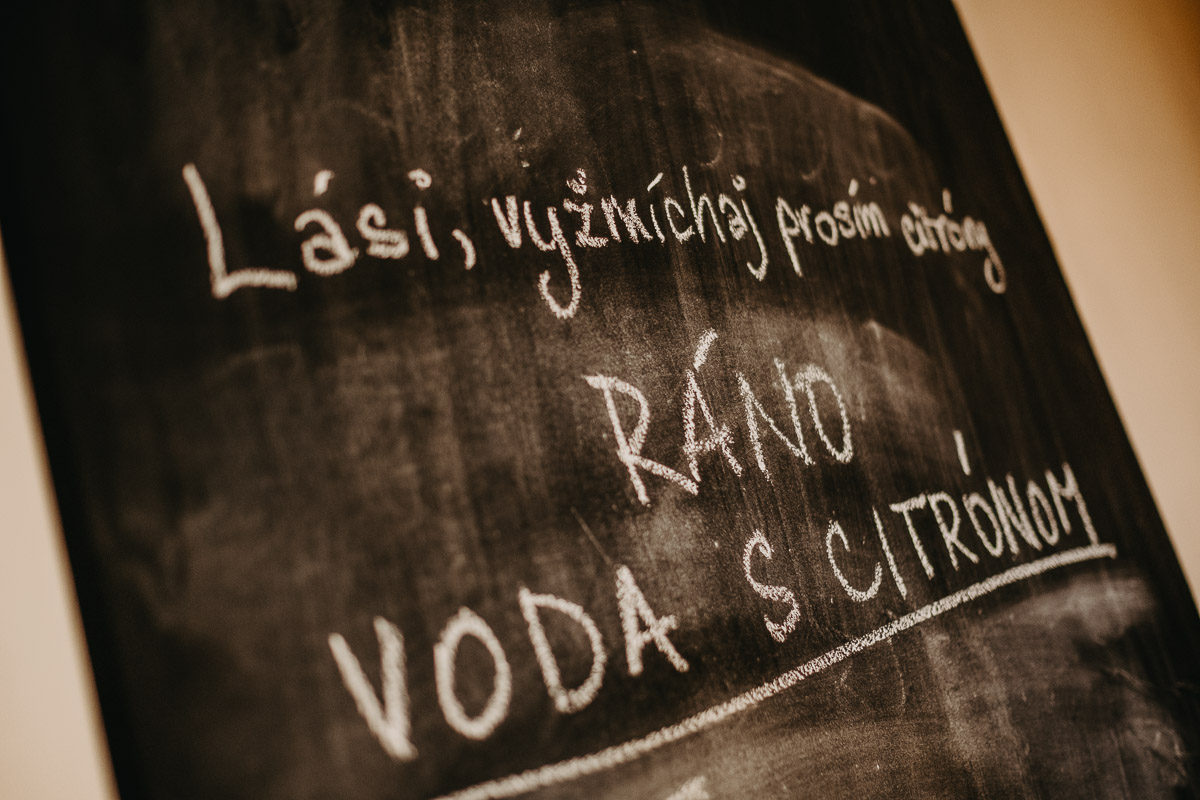 Lási, vyžmíchaj prosím citróny
RÁNO
VODA S CITRÓNOM